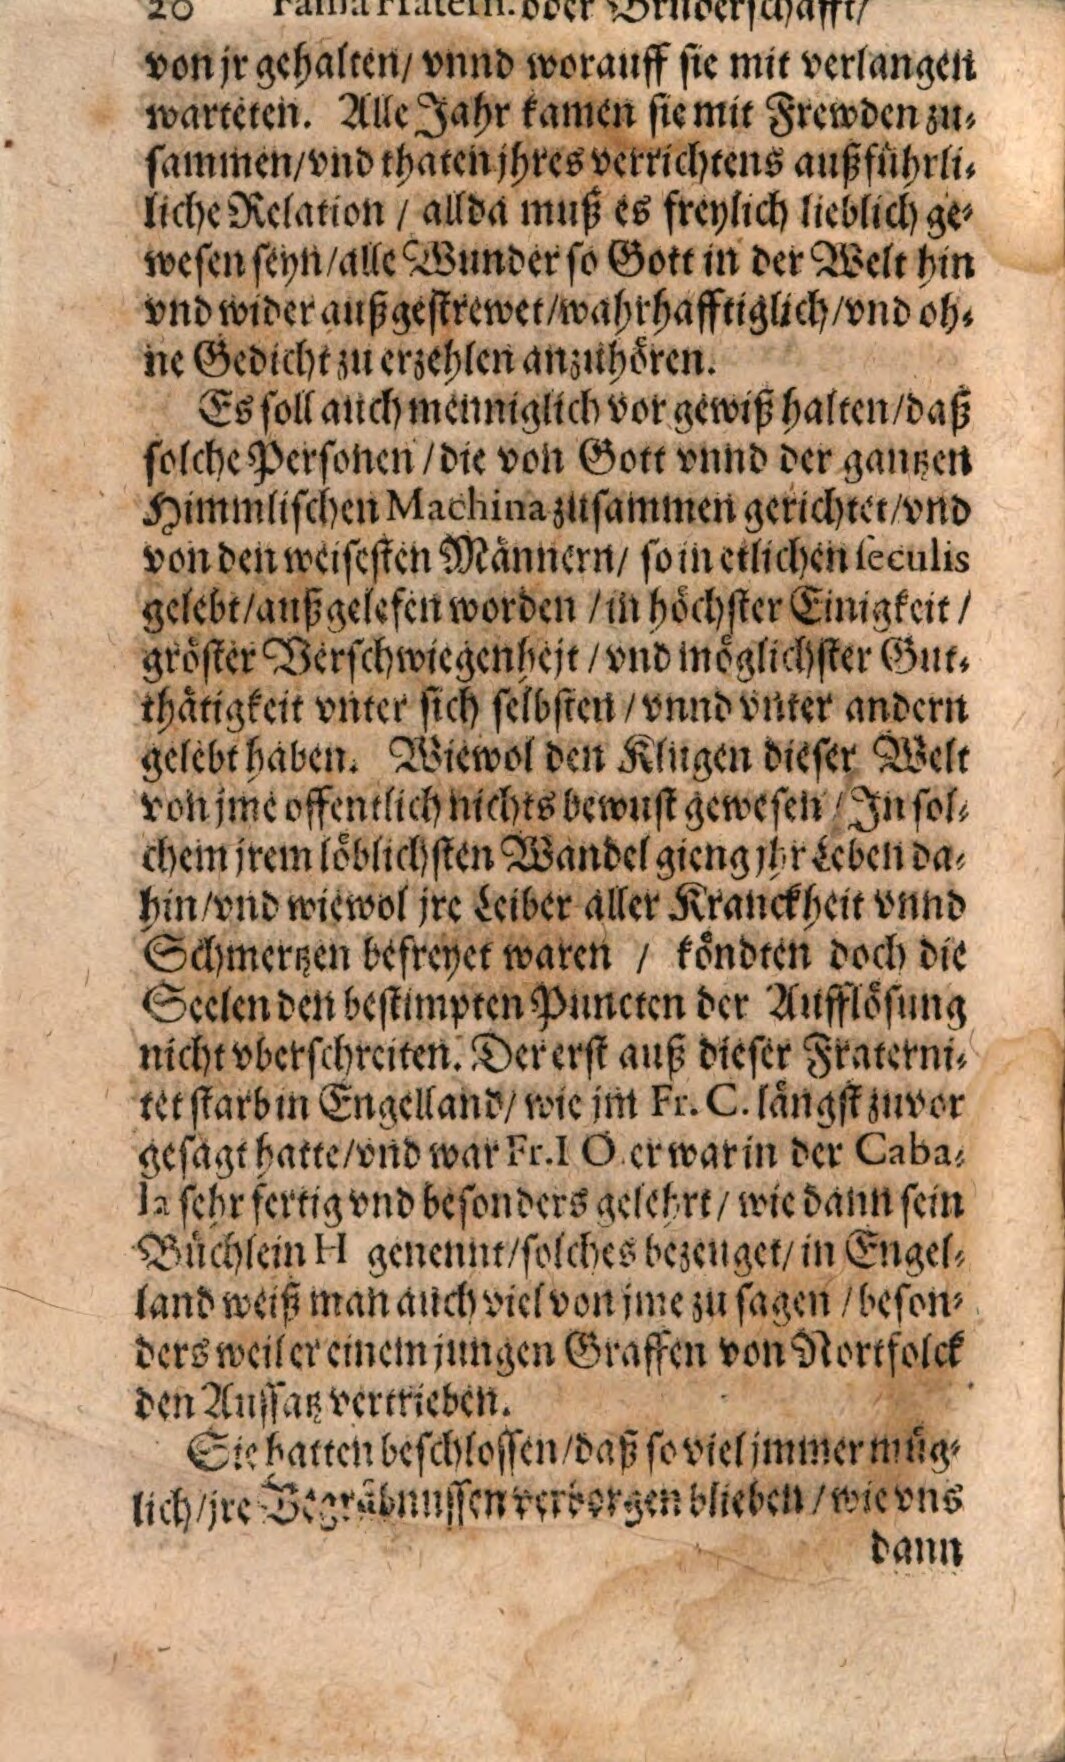 20 Fama Fratern. oder Brüderschafft/
von jr gehalten/ vnnd worauff sie mit verlangen
warteten. Alle Jahr kamen sie mit Frewden zu-
sammen/ vnd thaten jhres verrichtens außführli-
liche Relation / allda muß es freylich lieblich ge-
wesen seyn/ alle Wunder so Gott in der Welt hin
vnd wider außgestrewet/ wahrhafftiglich/ vnd oh-
ne Gedicht zu erzehlen anzuhören.
Es soll auch menniglich vor gewiß halten/ daß
solche Personen / die von Gott vnnd der gantzen
Himmlischen Machina zusammen gerichtet/ vnd
von den weisesten Männern/ so in etlichen seculis
gelebt/ außgelesen worden / in höchster Einigkeit /
gröster Verschwiegenheit / vnd möglichster Gut-
thätigkeit vnter sich selbsten / vnnd vnter andern
gelebt haben. Wiewol den Klugen dieser Welt
von jme offentlich nichts bewust gewesen / In sol-
chem jrem löblichsten Wandel gieng jhr Leben da-
hin/ vnd wiewol jre Leiber aller Kranckheit vnnd
Schmertzen befreyet waren / köndten doch die
Seelen den bestimpten Puncten der Aufflösung
nicht vberschreiten. Der erst auß dieser Fraterni-
tet starb in Engelland/ wie jm Fr. C. längst zuvor
gesagt hatte/ vnd war Fr. I O. er war in der Caba-
la sehr fertig vnd besonders gelehrt / wie dann sein
Büchlein H genennt/ solches bezeuget/ in Engel-
land weiß man auch viel von jme zu sagen / beson-
ders weil er einem jungen Graffen von Nortfolck
den Aussatz vertrieben.
Sie hatten beschlossen/ daß so viel jmmer müg-
lich/ jre Begräbnussen verborgen blieben / wie vns
dann